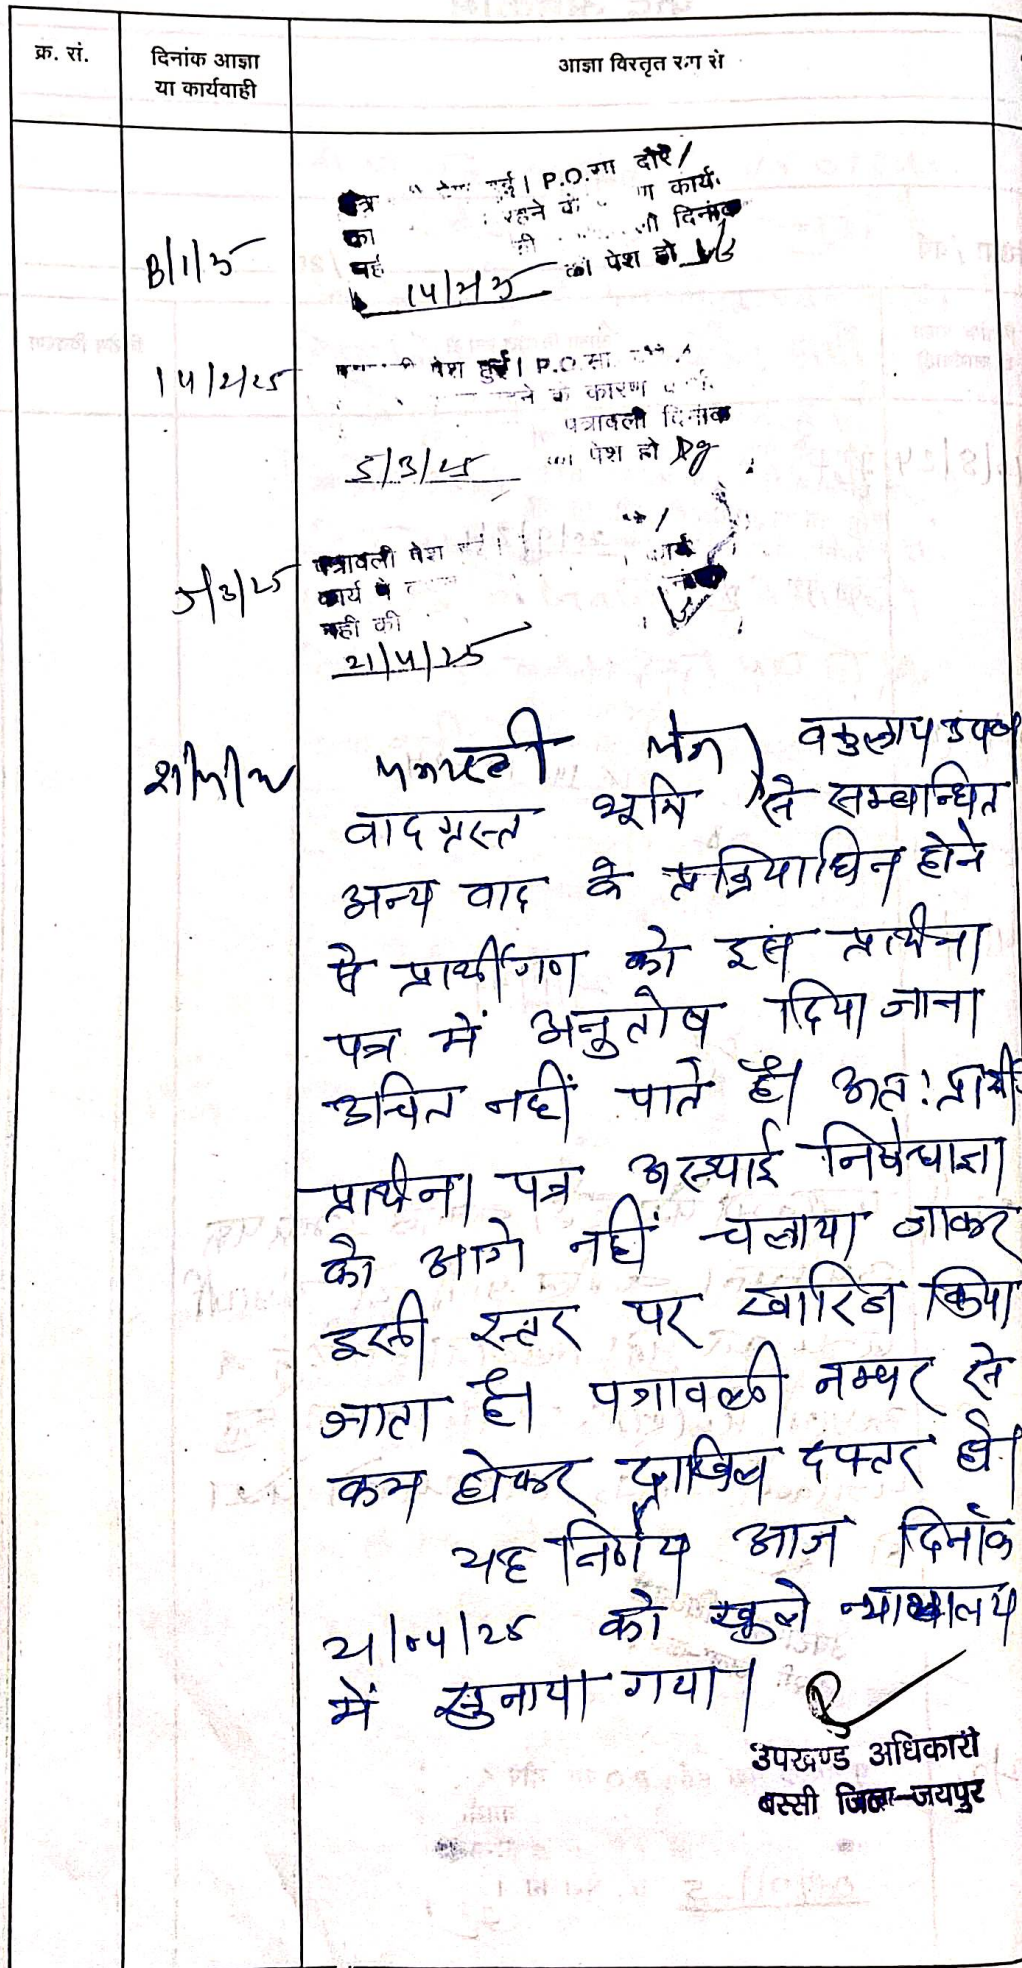 क्र. सं.
दिनांक आज्ञा
या कार्यवाही
आज्ञा विस्तृत रूप से
हुई। P.O.सा दौरे/
रहने के कार्य
दिनांक
को पेश हो
14/2/25
14/2/25
पेश हुई। P.O.सा
के कारण
पत्रावली दिनांक
पेश हो
5/3/25
5/3/25
पत्रावली पेश
कार्य
कार्य
नही की
21/4/25
पत्रावली पेश। वकुलाय उप०
वादग्रस्त भूमि से सम्बान्धित
अन्य वाद के प्रक्रियाधिन होने
से प्रार्थीगण को इस प्रार्थना
पत्र में अनुतोष दिया जाना
उचित नहीं पाते है। अतः प्रार्थी
प्रार्थना पत्र अस्थाई निषेधाज्ञा
को आगे नहीं चलाया जाकर
इसी स्तर पर खारिज किया
जाता है। पत्रावली नम्बर से
कम होकर दाखिल दफ्तर हो।
यह निर्णय आज दिनांक
21/04/25 को खुले न्यायालय
में सुनाया गया।
उपखण्ड अधिकारी
बस्सी जिला-जयपुर